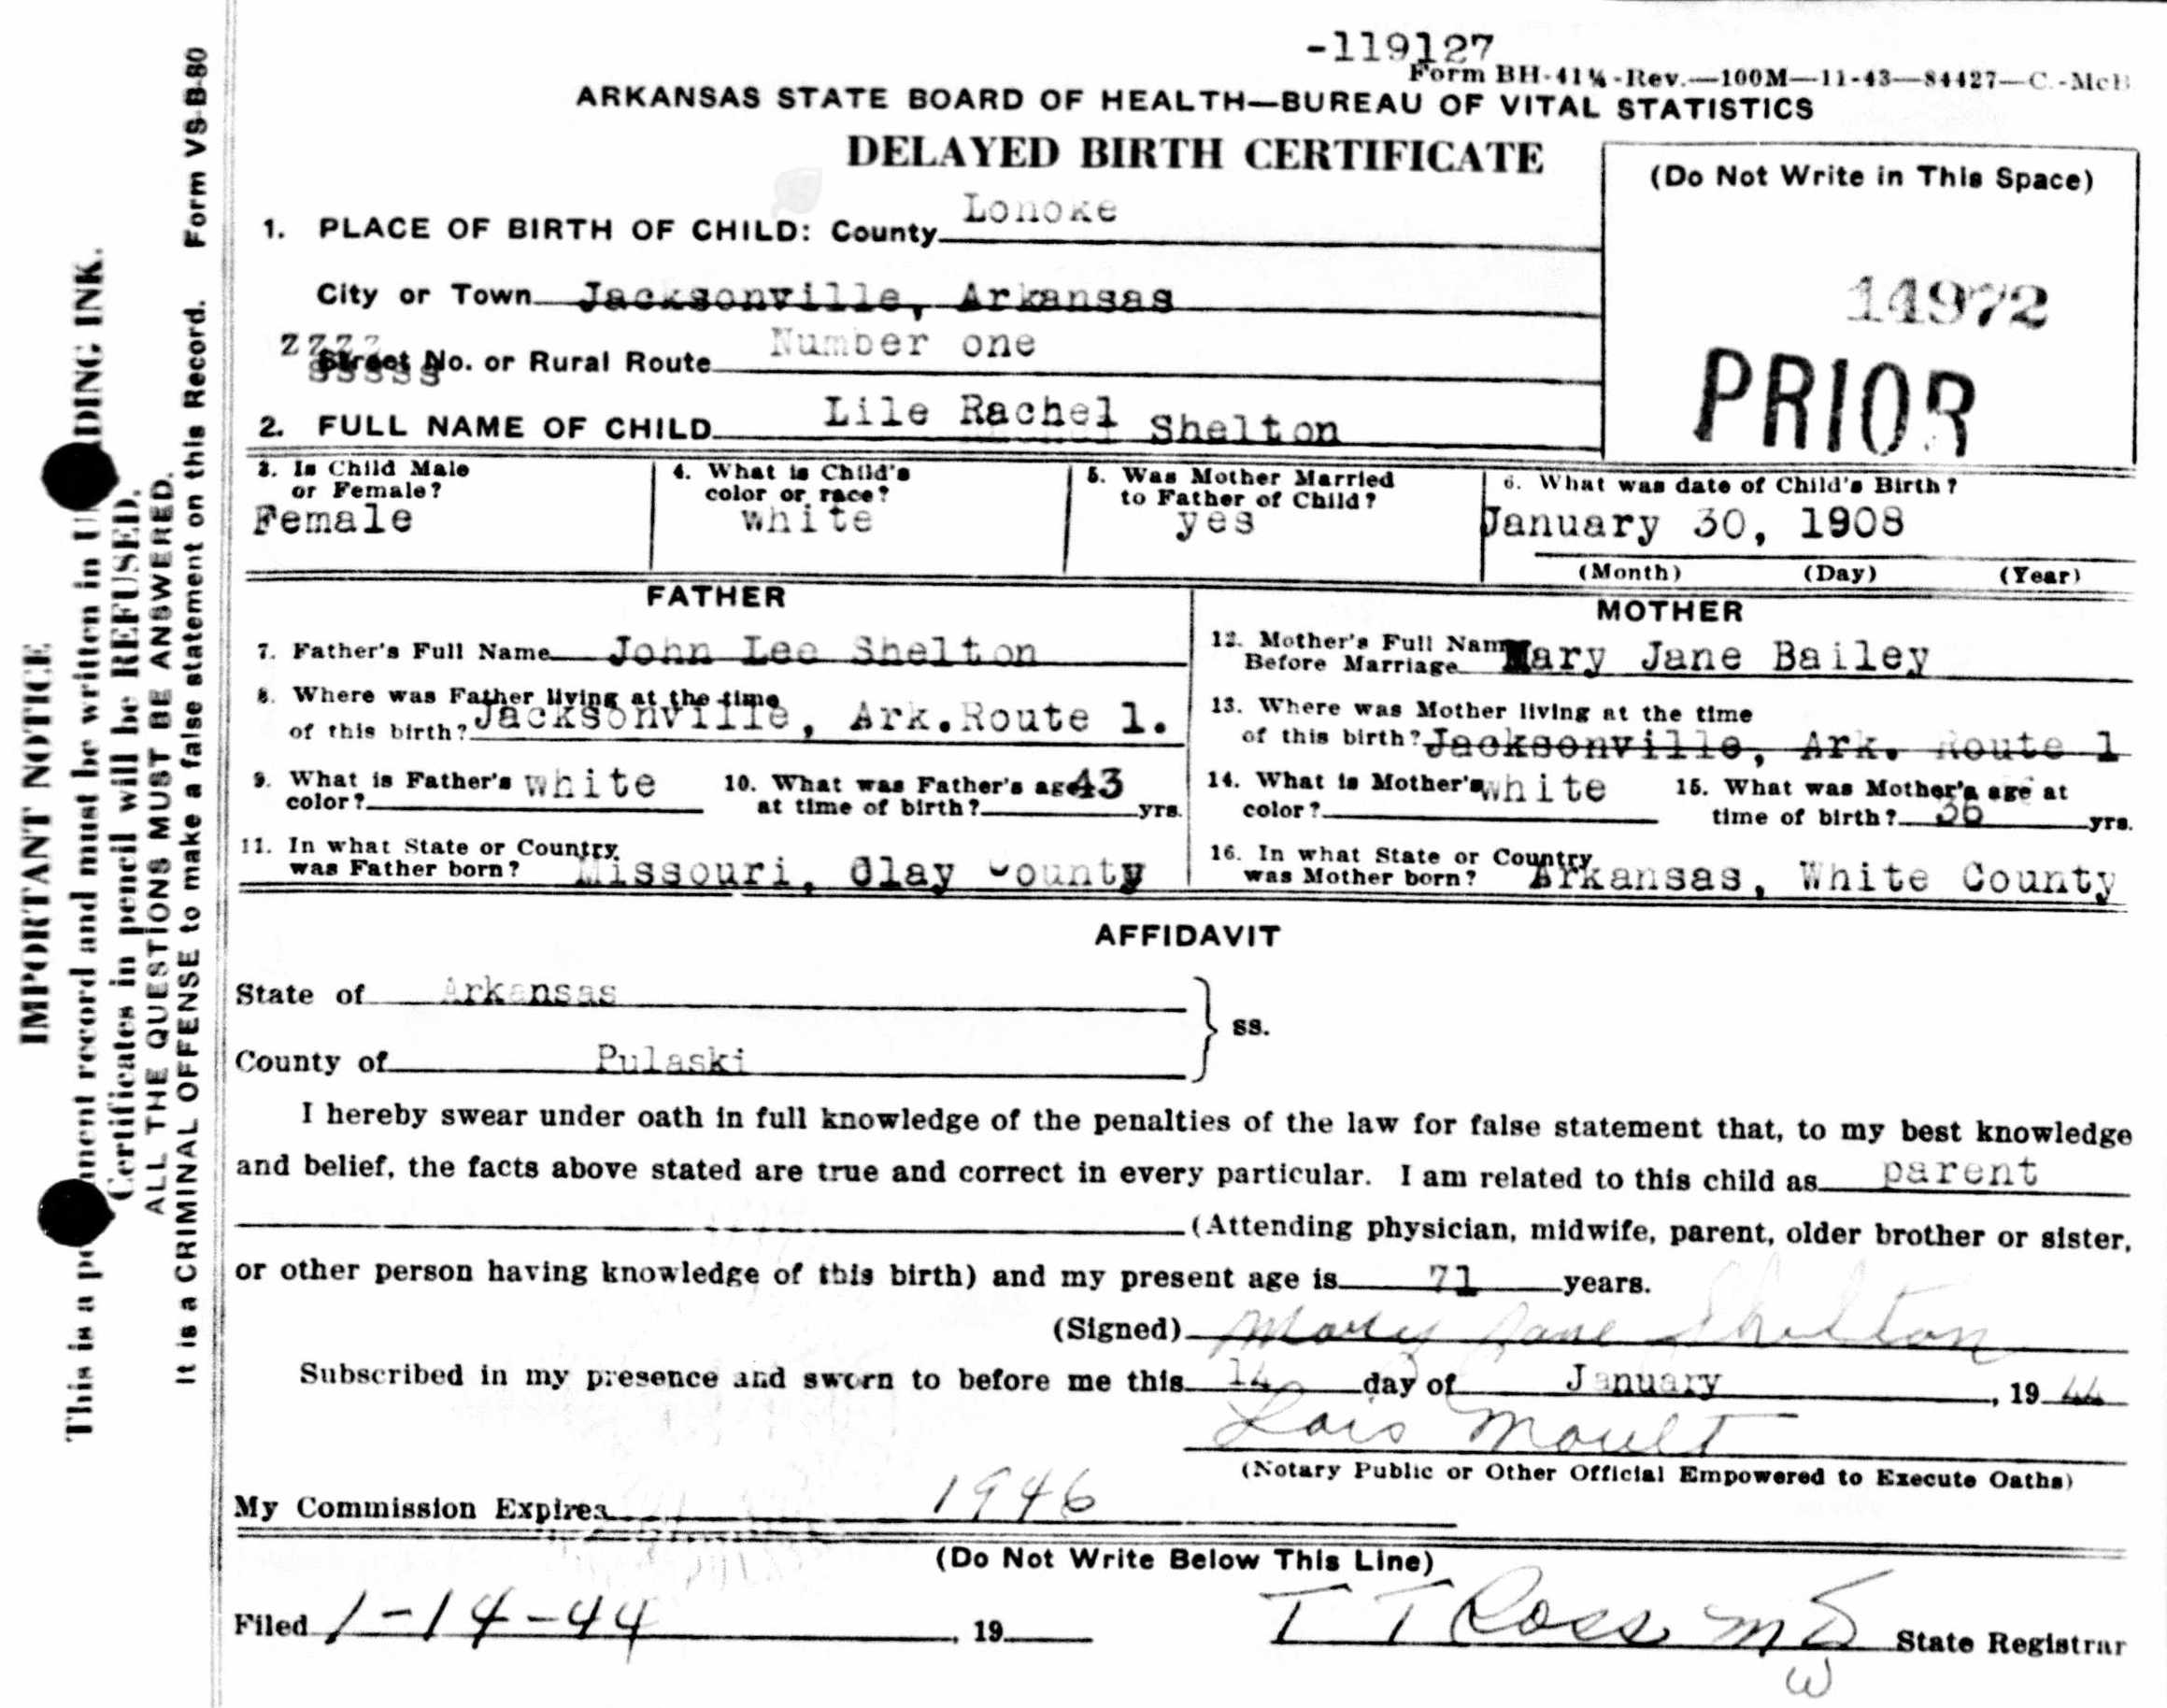 -119127
Form BH-41¼-Rev.—100M—11-43—84427—C.-McB
ARKANSAS STATE BOARD OF HEALTH—BUREAU OF VITAL STATISTICS
DELAYED BIRTH CERTIFICATE
(Do Not Write in This Space)
14972
PRIOR
1. PLACE OF BIRTH OF CHILD: County Lonoke
City or Town Jacksonville, Arkansas
zzzz
Street No. or Rural Route Number one
sssss
2. FULL NAME OF CHILD Lile Rachel Shelton
3. Is Child Male or Female?
Female
4. What is Child's color or race?
white
5. Was Mother Married to Father of Child?
yes
6. What was date of Child's Birth?
January 30, 1908
(Month) (Day) (Year)
FATHER
7. Father's Full Name John Lee Shelton
8. Where was Father living at the time
of this birth? Jacksonville, Ark. Route 1.
9. What is Father's color? white
10. What was Father's age at time of birth? 43 yrs.
11. In what State or Country
was Father born? Missouri, Clay County
MOTHER
12. Mother's Full Name
Before Marriage Mary Jane Bailey
13. Where was Mother living at the time
of this birth? Jacksonville, Ark. Route 1
14. What is Mother's color? white
15. What was Mother's age at time of birth? 36 yrs.
16. In what State or Country
was Mother born? Arkansas, White County
AFFIDAVIT
State of Arkansas
ss.
County of Pulaski
I hereby swear under oath in full knowledge of the penalties of the law for false statement that, to my best knowledge
and belief, the facts above stated are true and correct in every particular. I am related to this child as parent
(Attending physician, midwife, parent, older brother or sister,
or other person having knowledge of this birth) and my present age is 71 years.
(Signed) Mary Jane Shelton
Subscribed in my presence and sworn to before me this 14 day of January, 19 44
Lois Moult
(Notary Public or Other Official Empowered to Execute Oaths)
My Commission Expires 1946
(Do Not Write Below This Line)
Filed 1-14-44, 19
T T Ross MD State Registrar
W
Form VS-B-80
IMPORTANT NOTICE
This is a permanent record and must be written in UNFADING INK.
Certificates in pencil will be REFUSED.
ALL THE QUESTIONS MUST BE ANSWERED.
It is a CRIMINAL OFFENSE to make a false statement on this Record.